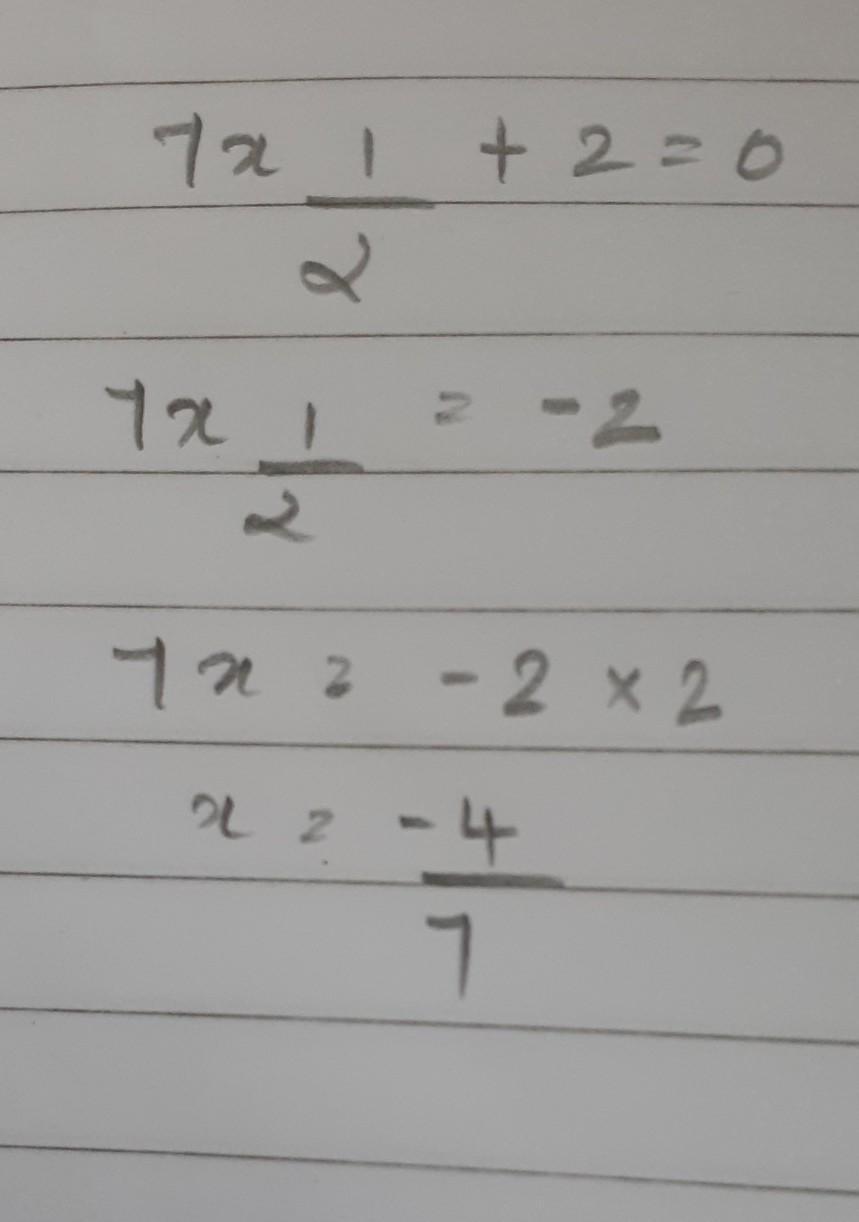 7x 1/2 + 2 = 0
7x 1/2 = -2
7x = -2 × 2
x = -4/7